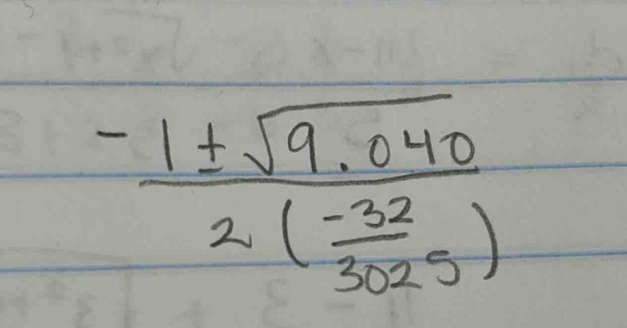 -1 ± √9.040
2 (-32/3025)